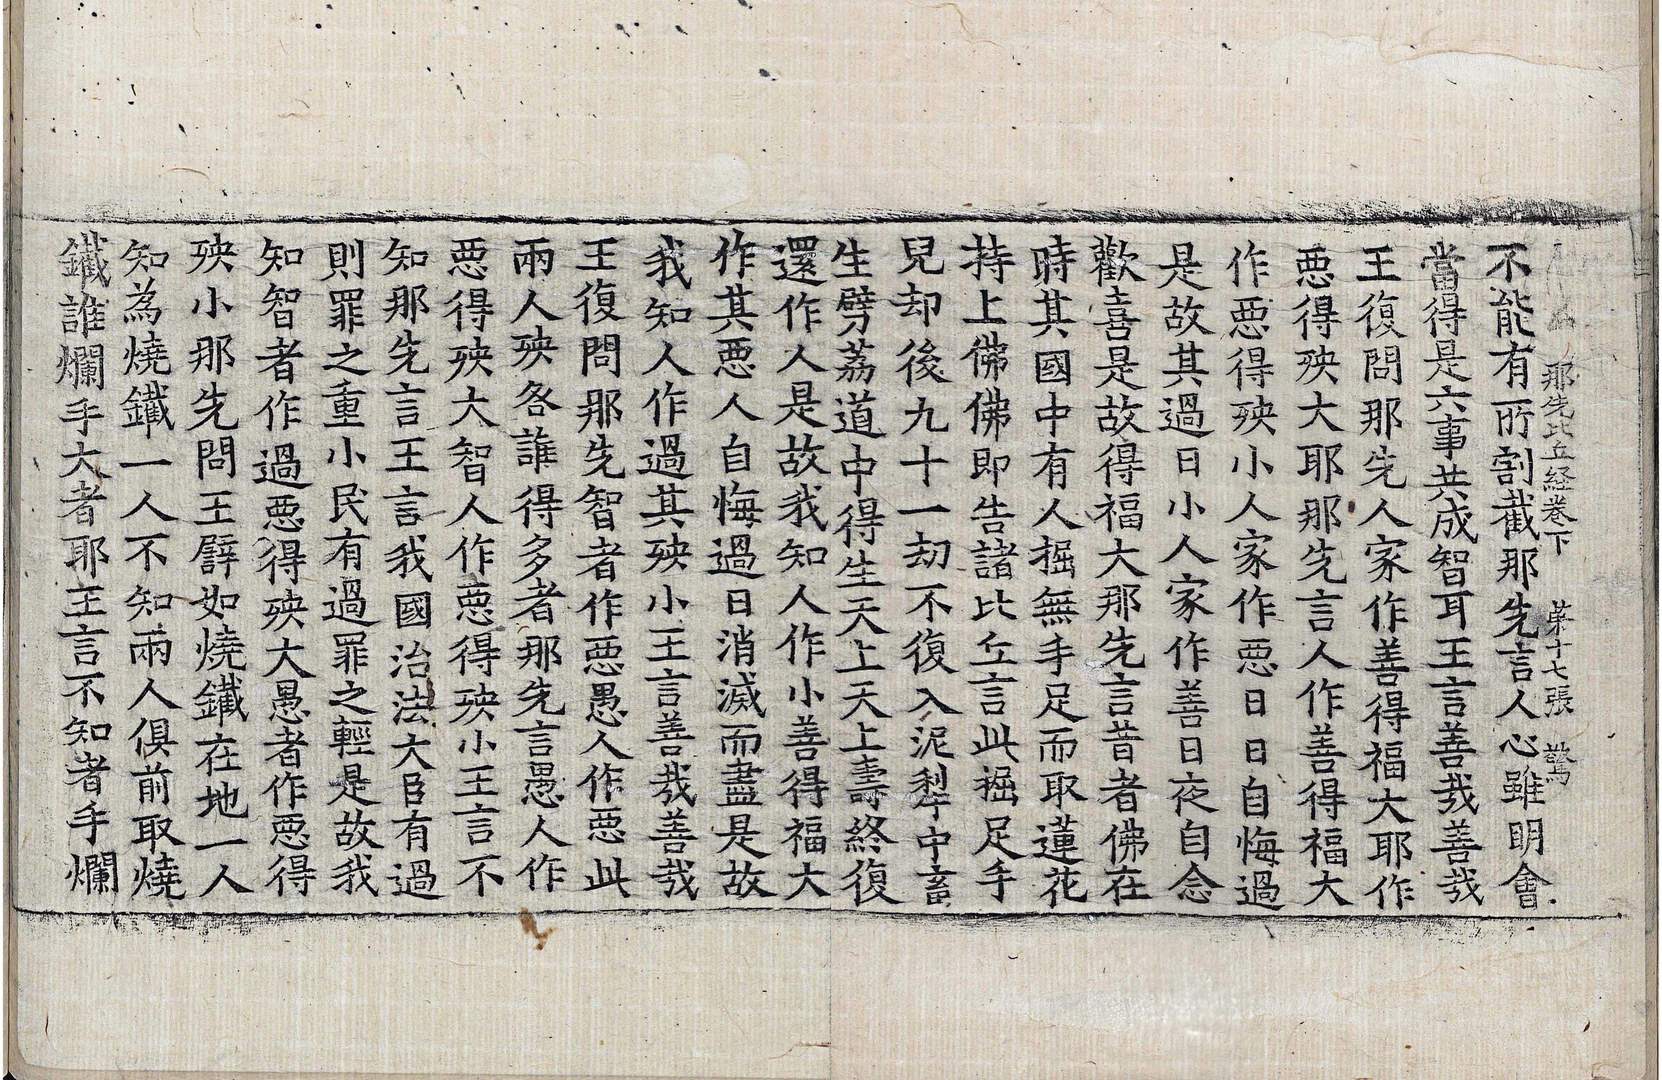 那先比丘経卷下　苐十七張　驚
不能有所割截那先言人心雖明會
當得是六事共成智耳王言善㢤善㢤
王復問那先人家作善得福大耶作
惡得殃大耶那先言人作善得福大
作惡得殃小人家作惡日日自悔過
是故其過日小人家作善日夜自念
歡喜是故得福大那先言昔者佛在
時其國中有人掘無手足而取蓮花
持上佛佛即告諸比丘言此掘足手
兒却後九十一劫不復入泥犁中畜
生劈荔道中得生天上天上壽終復
還作人是故我知人作小善得福大
作其惡人自悔過日消滅而盡是故
我知人作過其殃小王言善㢤善㢤
王復問那先智者作惡愚人作惡此
兩人殃各誰得多者那先言愚人作
惡得殃大智人作惡得殃小王言不
知那先言王言我國治法大臣有過
則罪之重小民有過罪之輕是故我
知智者作過惡得殃大愚者作惡得
殃小那先問王譬如燒鐵在地一人
知為燒鐵一人不知兩人俱前取燒
鐵誰爛手大者耶王言不知者手爛